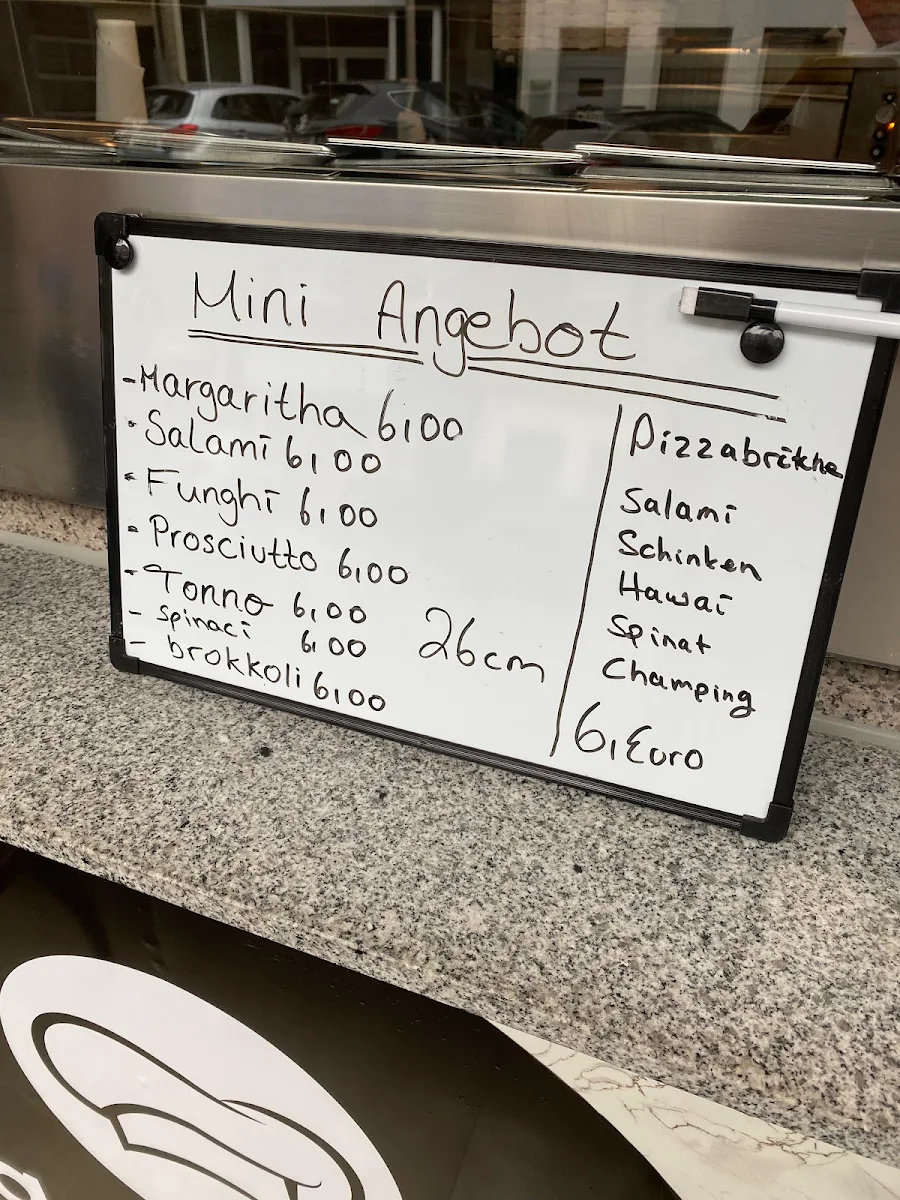 Mini Angebot
-Margaritha 6,00
- Salami 6,00
- Funghi 6,00
- Prosciutto 6,00
- Tonno 6,00
- Spinaci 6,00
- brokkoli 6,00
26cm
Pizzabrötche
Salami
Schinken
Hawai
Spinat
Champing
6,Euro